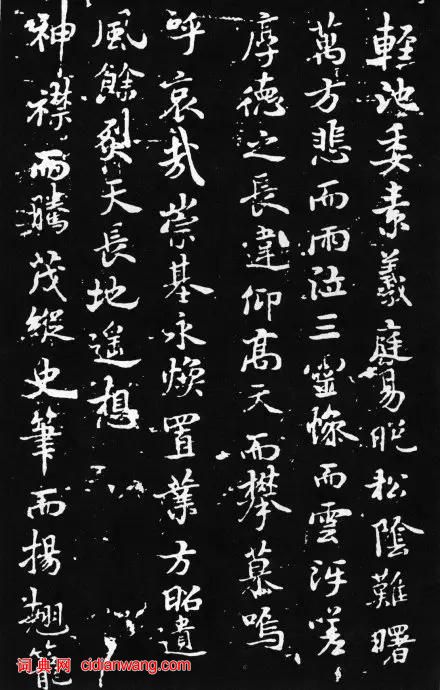 輕池委素羲庭易晚松陰難曙
萬方悲而雨泣三靈慘而雲沍嗟
厚德之長違仰高天而攀慕嗚
呼哀哉崇基永煥置業方昭遺
風餘烈天長地遙想
神襟而騰茂縱史筆而揚翹籠
词典网 cidianwang.com